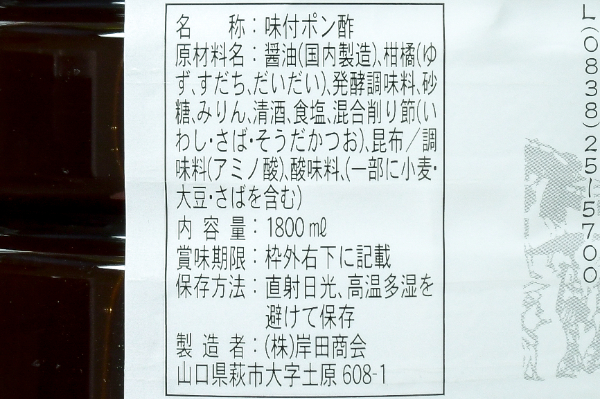 名　称：味付ポン酢
原材料名：醤油(国内製造)、柑橘(ゆ
ず、すだち、だいだい)、発酵調味料、砂
糖、みりん、清酒、食塩、混合削り節(い
わし・さば・そうだかつお)、昆布／調
味料(アミノ酸)、酸味料、(一部に小麦・
大豆・さばを含む)
内容量：1800㎖
賞味期限：枠外右下に記載
保存方法：直射日光、高温多湿を
避けて保存
製造者：(株)岸田商会
山口県萩市大字土原608-1
L(0838)25-5700